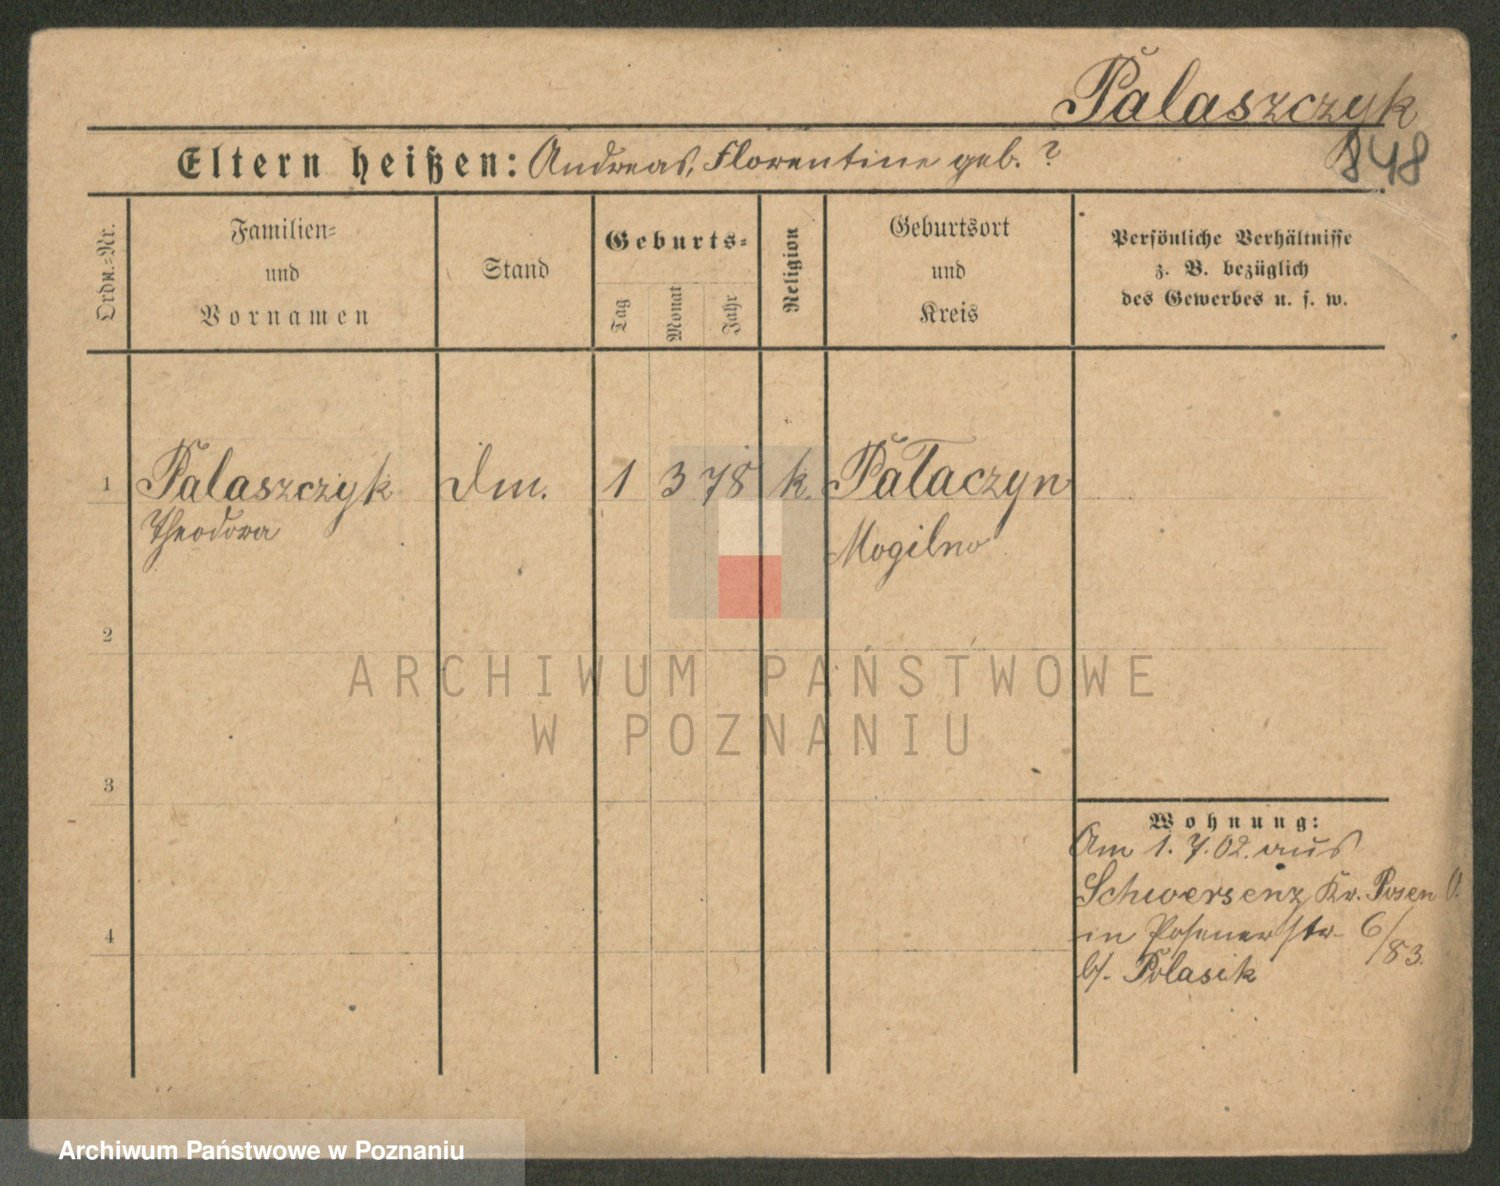 Palaszczyk
848
Eltern heißen: Andreas, Florentine geb. ?
Ordn.-Nr.
Familien-
und
Vornamen
Stand
Geburts-
Tag
Monat
Jahr
Religion
Geburtsort
und
Kreis
Persönliche Verhältnisse
z. B. bezüglich
des Gewerbes u. s. w.
1 Palaszczyk Dm. 1 3 78 k. Pałaczyn
Theodora Mogilno
2
ARCHIWUM PAŃSTWOWE
W POZNANIU
3
Wohnung:
Am 1. 7. 02. aus
Schwersenz Kr. Posen O.
4
in Posenerstr 6/83.
b/. Polasik
Archiwum Państwowe w Poznaniu